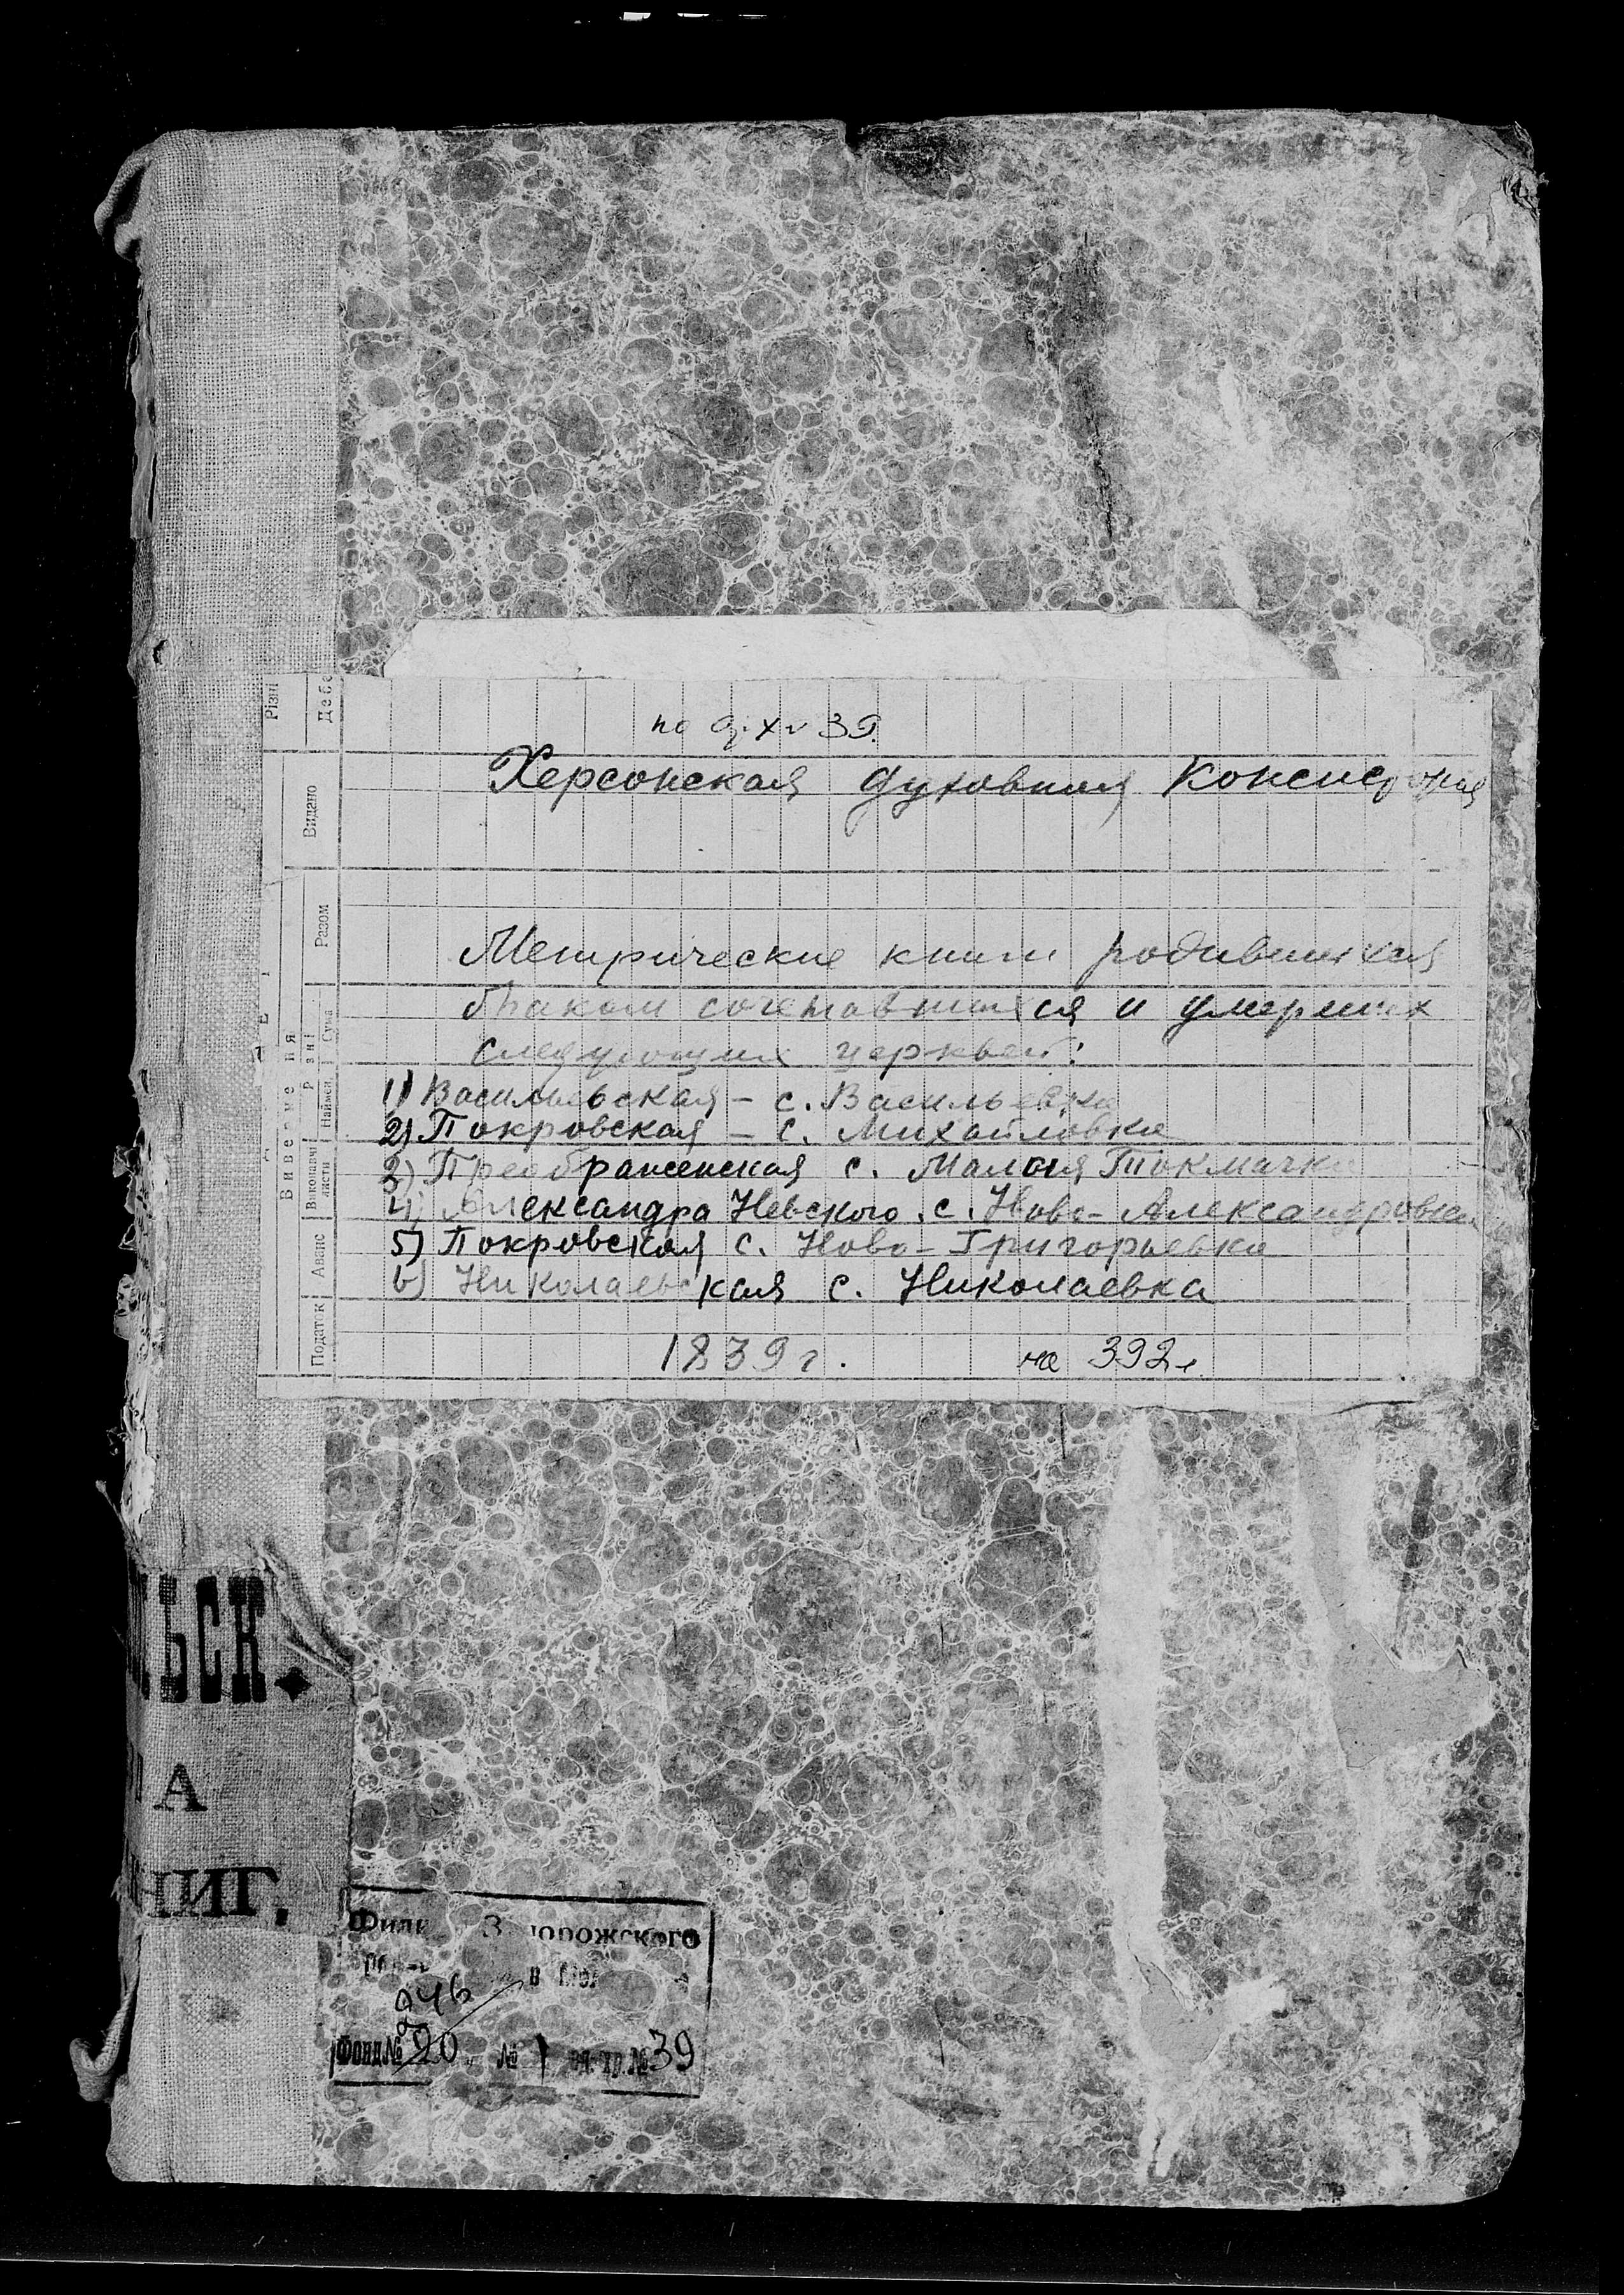 Різні
Дебе
Видано
Разом
Виверше ня
Різні
Сума
Виконавчі листи
Наймен.
Аванс
Податок
39.
Херсонская духовная Консистория
Метрические книги родившихся
браком сочетавшихся и умерших
следующих церквей:
1) Васильевская - с. Васильевка
2) Покровская - с. Михайловка
3) Преображенская с. Малая Токмачка
4) Александра Невского с. Ново-Александровка
5) Покровская с. Ново-Григорьевка
6) Николаевская с. Николаевка
1839 г. на 392 л.
ЬСК.
А
НИГ.
Фили З порожского
246
Фонд № 20 № 1 ед. хр. № 39